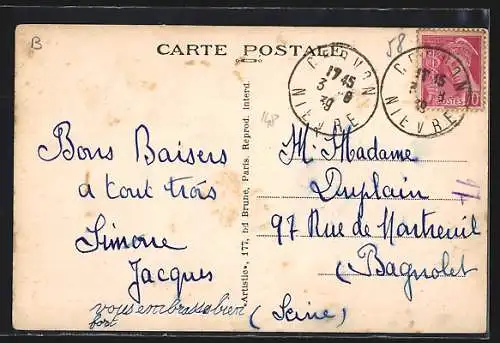 B
CARTE POSTALE
58
CORVON
17 45
3 -8
39
NIEVRE
CORVON
17 45
39
NIEVRE
POSTES
Bons Baisers
a tout trois
Simone
Jacques
vous embrasse bien
fort
«Artistic», 177, bd Brune, Paris. Reprod. interd.
Mr Madame
Duplain
97 Rue de Montreuil
(Bagnolet
(Seine)
97